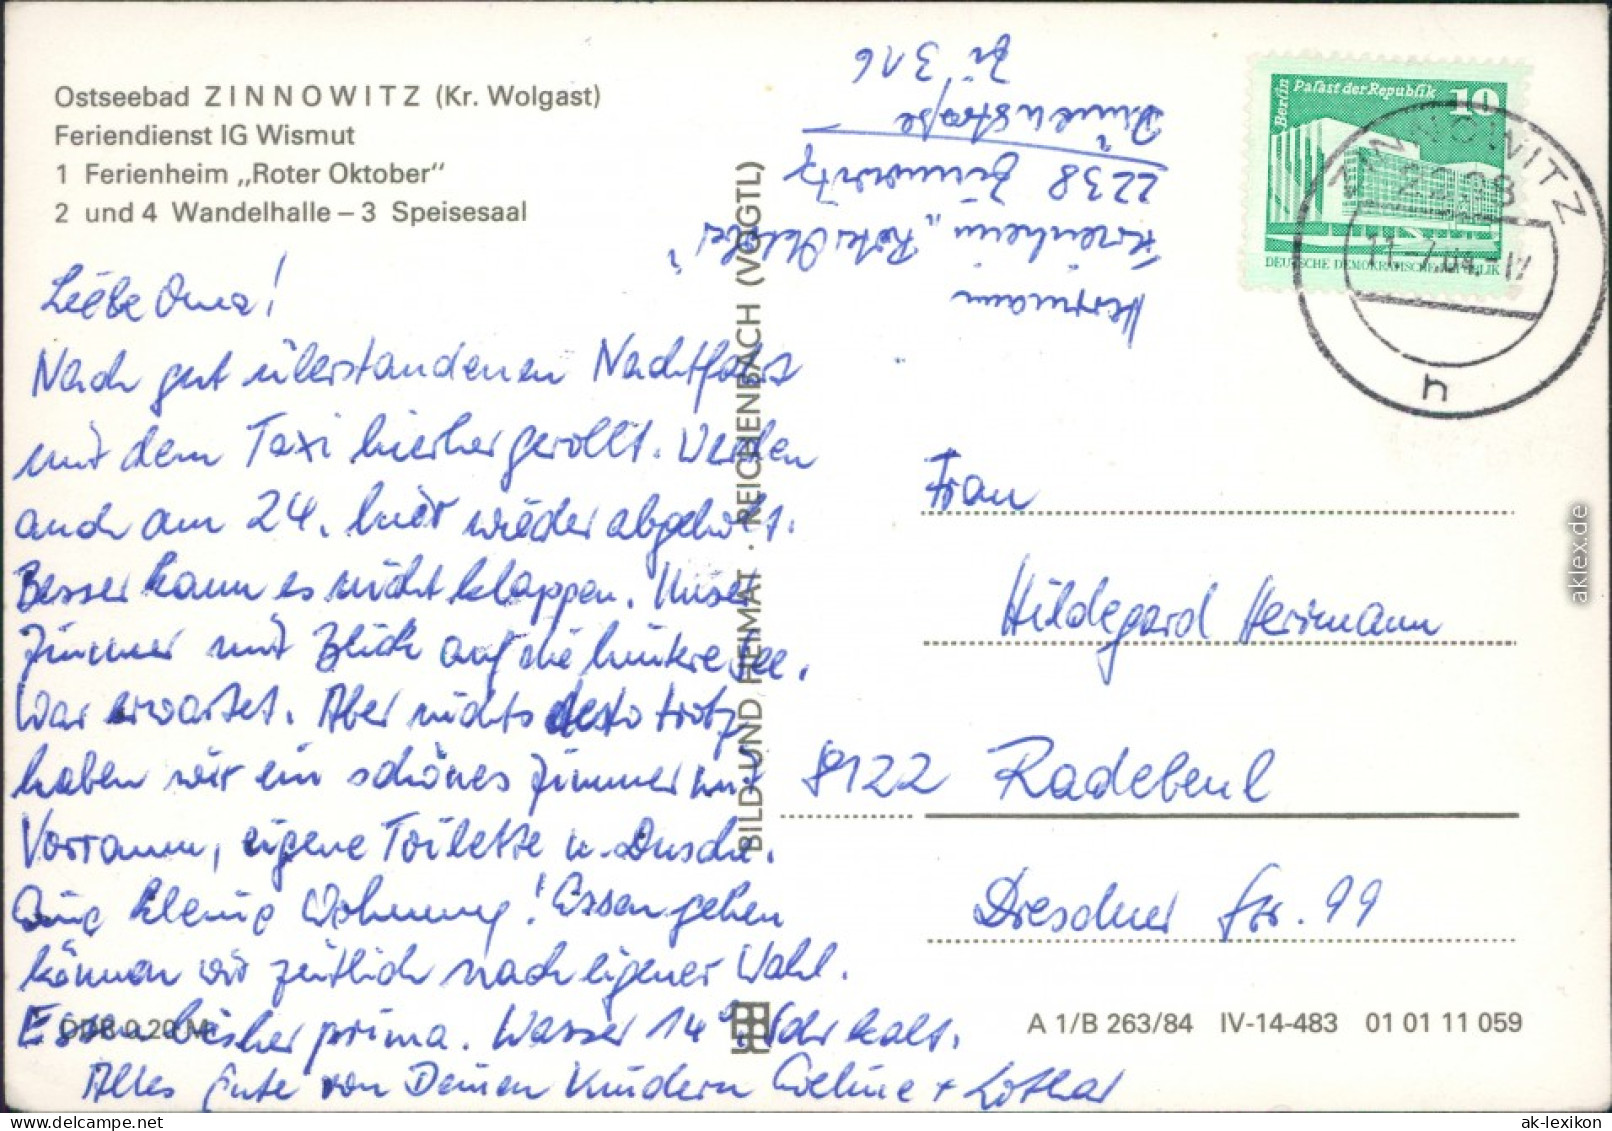 Ostseebad ZINNOWITZ (Kr. Wolgast)
Feriendienst IG Wismut
1 Ferienheim „Roter Oktober“
2 und 4 Wandelhalle – 3 Speisesaal
Liebe Oma!
Nach gut überstandenen Nachtfahrt
mit dem Taxi hierher gerollt. Werden
auch am 24. hier wieder abgeholt.
Besser kann es nicht klappen. Unser
Zimmer mit Blick auf die hintere See.
War erwartet. Aber nichts desto trotz
haben wir ein schönes Zimmer mit
Vorraum, eigene Toilette u. Dusche.
Eine kleine Wohnung! Essen gehen
können wir zeitlich nach eigener Wahl.
Essen bisher prima. Wasser 14°. Sehr kalt.
Alles Gute von Deinen Kindern + Lothar
DDR 0,20 M
BILD UND HEIMAT · REICHENBACH (VOGTL)
Herrmann
Ferienheim „Roter Oktober“
2238 Zinnowitz
Dünenstraße
Zi 316
Berlin Palast der Republik 10
DEUTSCHE DEMOKRATISCHE REPUBLIK
ZINNOWITZ
2238
h
Frau
Hildegard Herrmann
8122 Radebeul
Dresdner Str. 99
A 1/B 263/84 IV-14-483 01 01 11 059
aklex.de
ak-lexikon